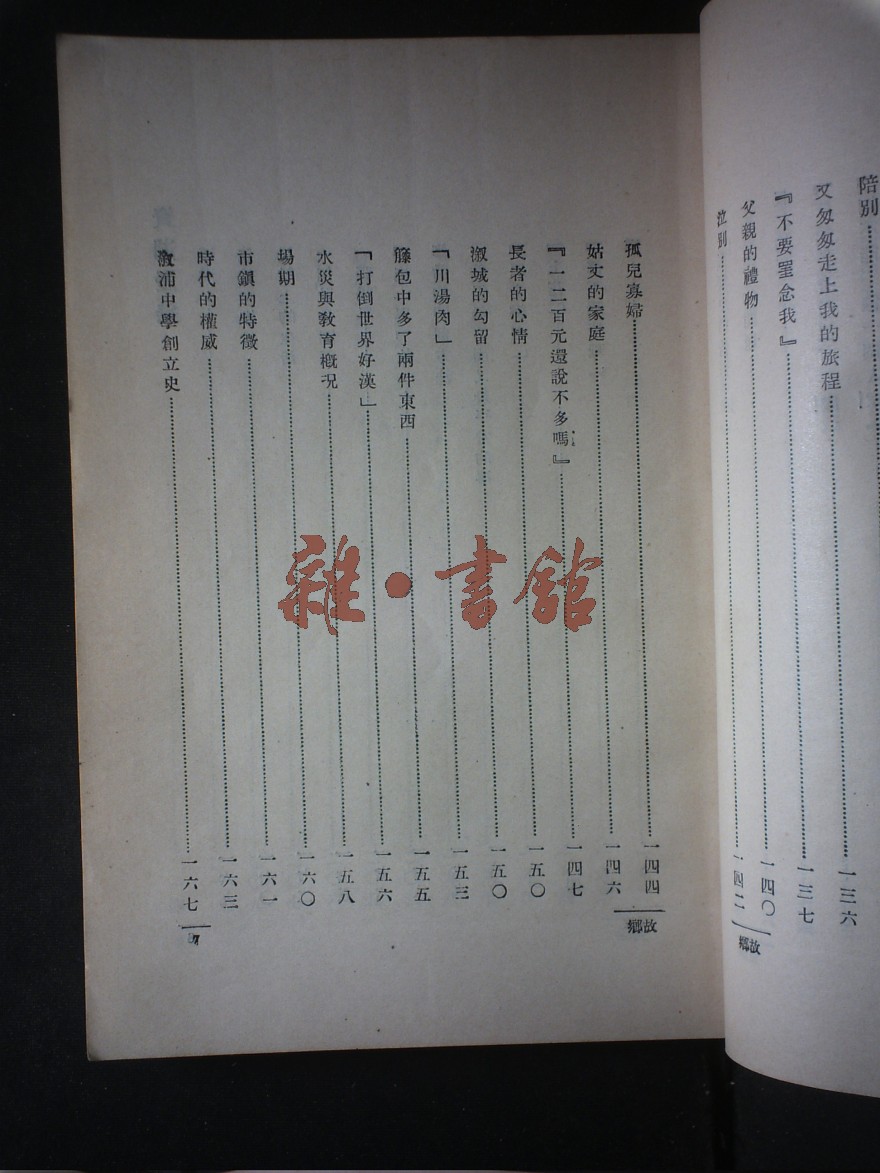 陪別……一三六
又匆匆走上我的旅程……一三七
『不要罣念我』……一四〇
父親的禮物……一四二
泣別
故鄉
孤兒寡婦……一四四
姑丈的家庭……一四六
『一二百元還說不多嗎』……一四七
長者的心情……一五〇
溆城的勾留……一五〇
「川湯肉」……一五三
籐包中多了兩件東西……一五五
「打倒世界好漢」……一五六
水災與敎育槪況……一五八
場期……一六〇
市鎭的特徵……一六一
時代的權威……一六三
溆浦中學創立史……一六七
故鄉
7
雜·書館